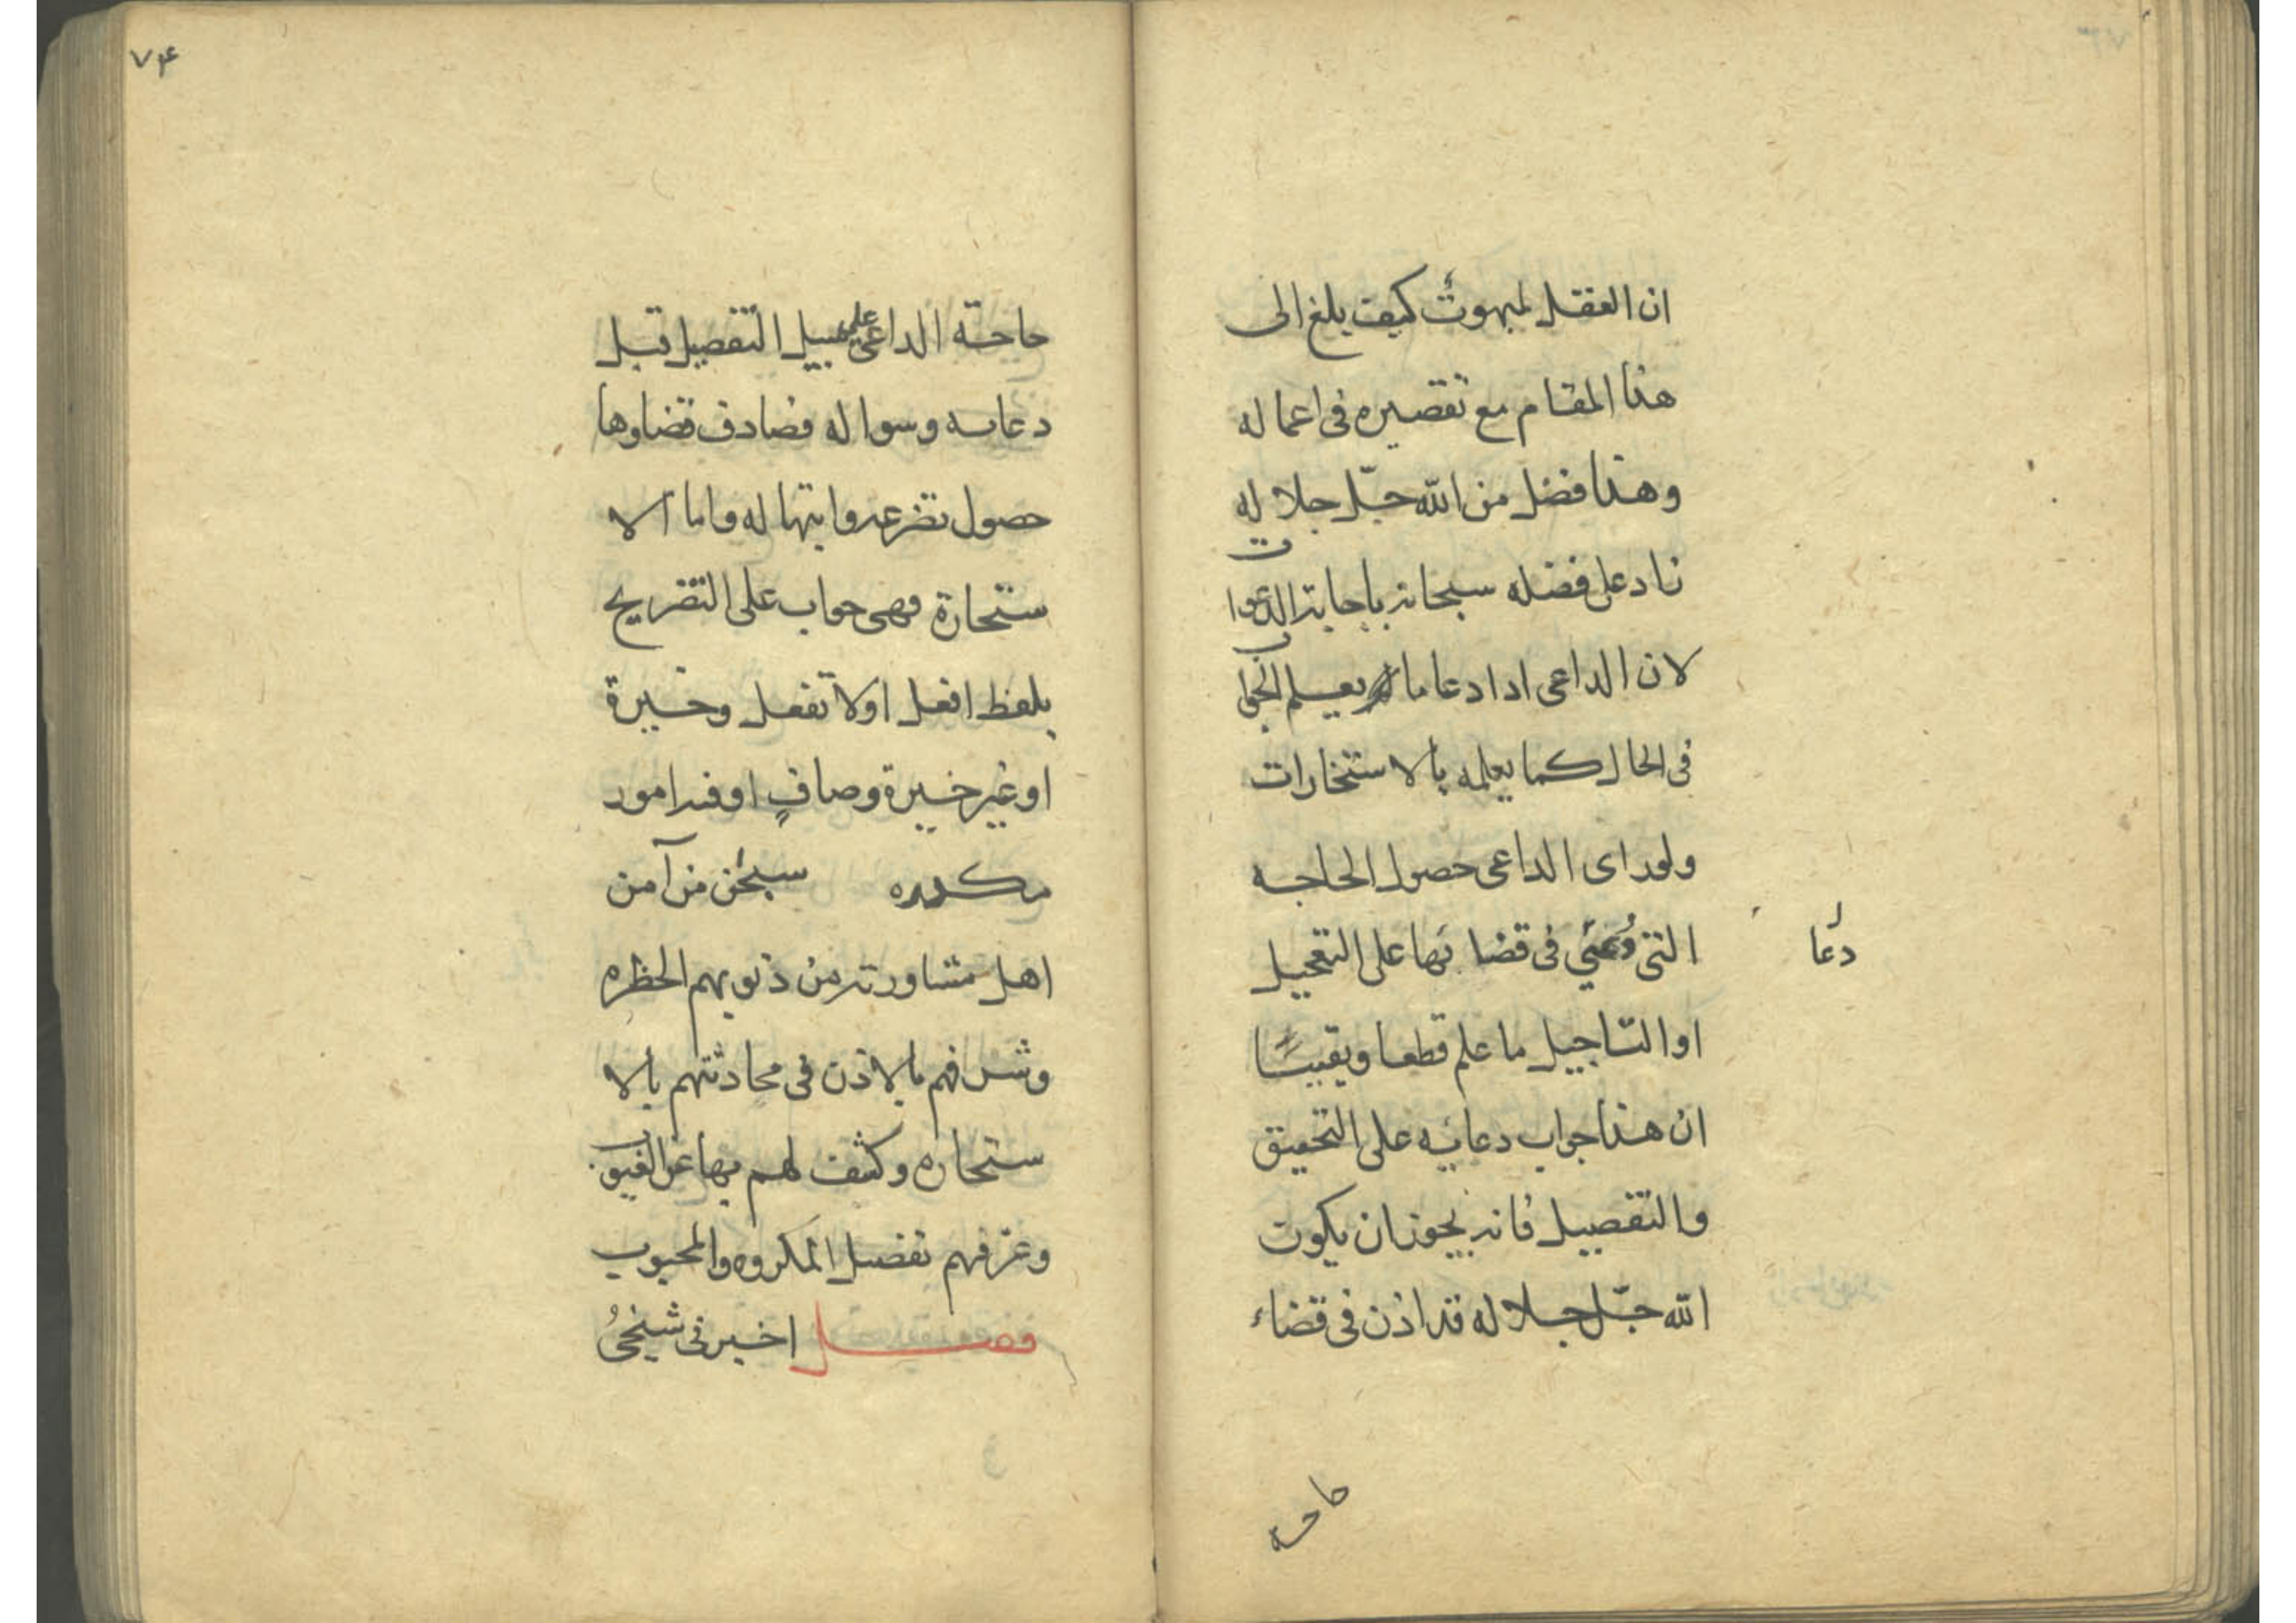 ان العقل لمبهوت كيف يبلغ الى
هذا المقام مع تقصيره فى اعماله
وهذا فضل من الله جلّ جلاله
زاد على فضله سبحانه باجابة الدعوات
لان الداعى اذا دعا ما يعلم الجواب
فى الحال كما يعلمه بالاستخارات
ولو راى الداعى حصول الحاجه
التى فى قضائها على التعجيل
دعا
او التاجيل ما علم قطعا ويقينًا
ان هذا جواب دعائه على التحقيق
والتفصيل فانه يجوز ان يكون
الله جلّ جلاله قد اذن فى قضاء
حاجه
٧۴
حاجة الداعى على سبيل التفصيل قبل
دعايه وسواله فصادف قضاوها
حصول تضرعه وابتهاله واما الا
ستخارة فهى جواب على التصريح
بلفظ افعل اولا تفعل وخيرة
او غير خيرة وصافٍ او فيه امور
مكدره سبحن من آمن
اهل مشاورته من ذنوبهم الخطره
وشرافهم بالاذن فى محادثتهم بالا
ستخاره وكشف لهم بها عن الغيوب
وعرفهم تفضيل المكروه والمحبوب
فصل اخبرنى شيخى